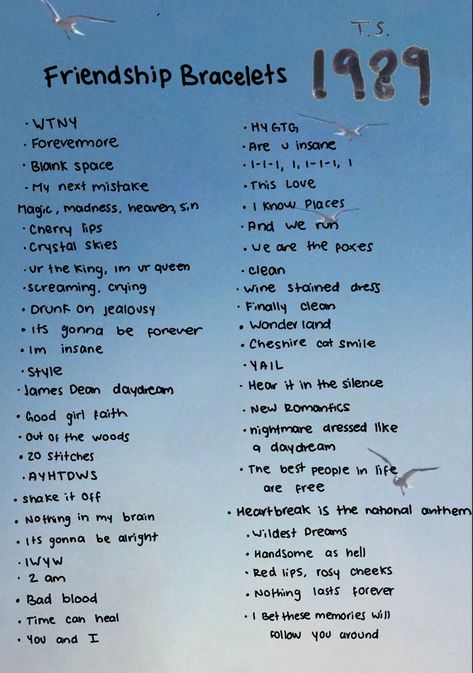 T.S.
1989
Friendship Bracelets
· WTNY
· Forevermore
· Blank space
· My next mistake
Magic, madness, heaven, sin
· Cherry lips
· Crystal skies
· ur the king, im ur queen
· screaming, crying
· Drunk on jealousy
· its gonna be forever
· Im insane
· Style
· James Dean daydream
· Good girl faith
· Out of the woods
· 20 stitches
· AYHTDWS
· shake it off
· Nothing in my brain
· its gonna be alright
· IWYW
· 2 am
· Bad blood
· Time can heal
· You and I
· HYGTG
· Are u insane
· 1-1-1, 1, 1-1-1, 1
· This Love
· I Know Places
· And we run
· we are the foxes
· clean
· wine stained dress
· Finally clean
· Wonderland
· Cheshire cat smile
· YAIL
· Hear it in the silence
· New Romantics
· nightmare dressed like
a daydream
· The best people in life
are free
· Heartbreak is the national anthem
· Wildest Dreams
· Handsome as hell
· Red lips, rosy cheeks
· Nothing lasts forever
· I Bet these memories will
follow you around